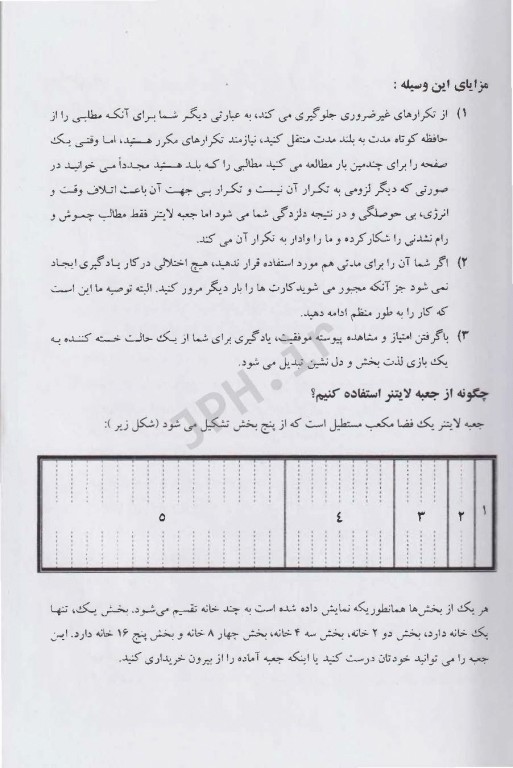 مزایای این وسیله :
۱) از تکرارهای غیرضروری جلوگیری می کند، به عبارتی دیگر شما برای آنکه مطلبی را از
حافظه کوتاه مدت به بلند مدت منتقل کنید، نیازمند تکرارهای مکرر هستید، اما وقتی یک
صفحه را برای چندمین بار مطالعه می کنید مطالبی را که بلد هستید مجدداً می خوانید در
صورتی که دیگر لزومی به تکرار آن نیست و تکرار بی جهت آن باعث اتلاف وقت و
انرژی، بی حوصلگی و در نتیجه دلزدگی شما می شود اما جعبه لایتنر فقط مطالب چموش و
رام نشدنی را شکار کرده و ما را وادار به تکرار آن می کند.
۲) اگر شما آن را برای مدتی هم مورد استفاده قرار ندهید، هیچ اختلالی در کار یادگیری ایجاد
نمی شود جز آنکه مجبور می شوید کارت ها را بار دیگر مرور کنید. البته توصیه ما این است
که کار را به طور منظم ادامه دهید.
۳) با گرفتن امتیاز و مشاهده پیوسته موفقیت، یادگیری برای شما از یک حالت خسته کننده به
یک بازی لذت بخش و دل نشین تبدیل می شود.
چگونه از جعبه لایتنر استفاده کنیم؟
جعبه لایتنر یک فضا مکعب مستطیل است که از پنج بخش تشکیل می شود (شکل زیر ):
۱ ۲ ۳ ٤ ٥
هر یک از بخش‌ها همانطوریکه نمایش داده شده است به چند خانه تقسیم می‌شود. بخش یک، تنها
یک خانه دارد، بخش دو ۲ خانه، بخش سه ۴ خانه، بخش چهار ۸ خانه و بخش پنج ۱۶ خانه دارد. این
جعبه را می توانید خودتان درست کنید یا اینکه جعبه آماده را از بیرون خریداری کنید.
JPH.ir